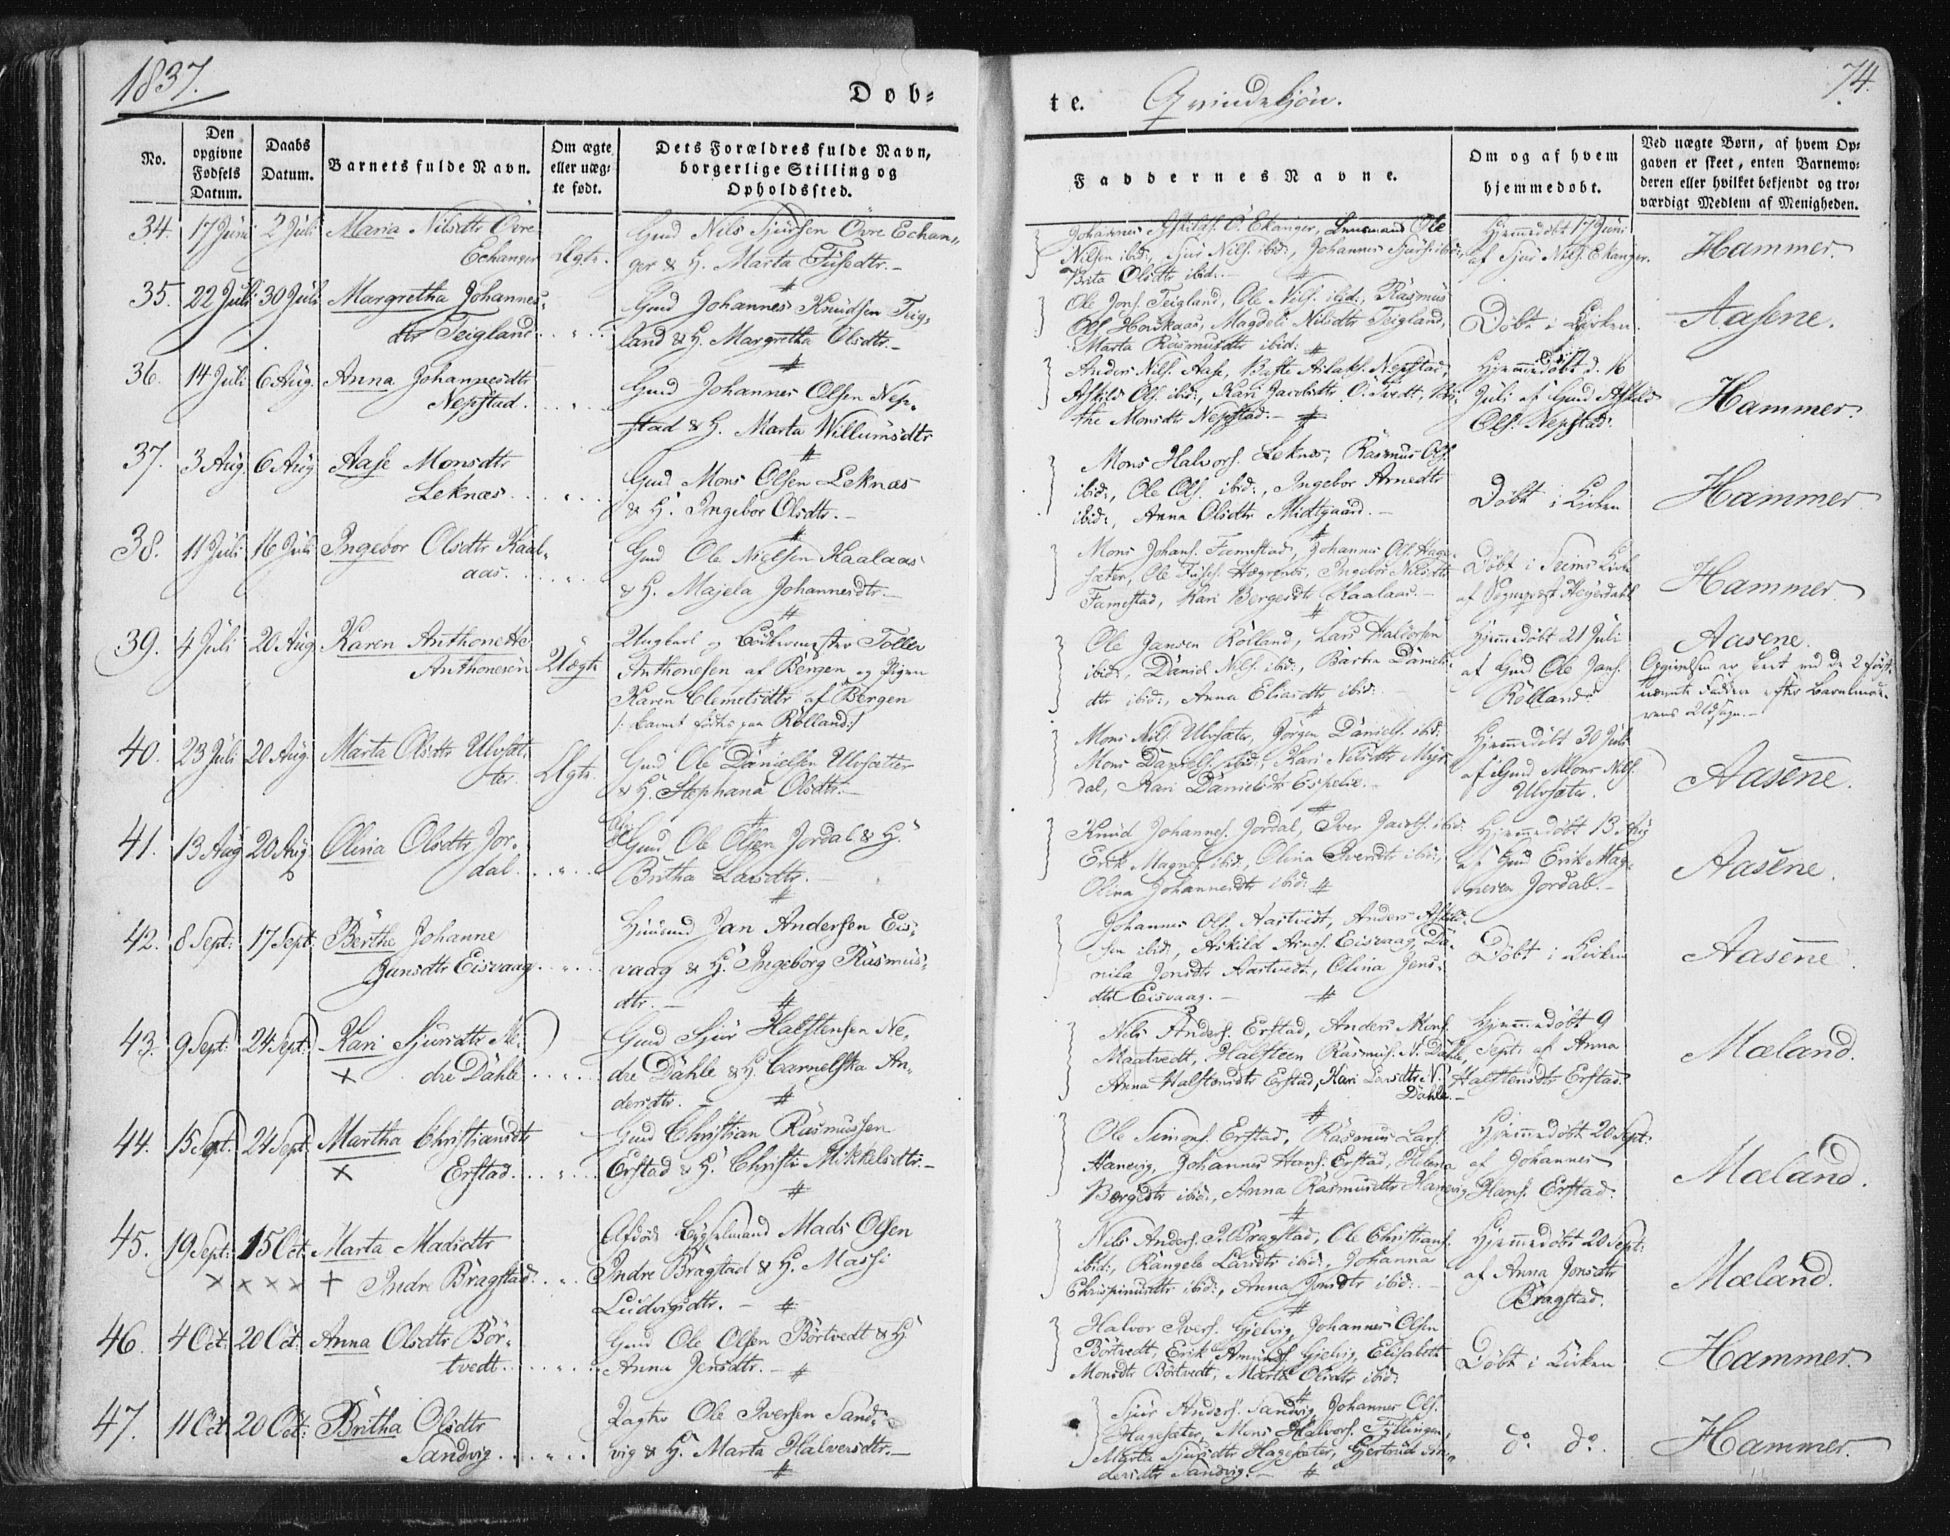 1837.
Døb=
te.
Qvindekjön.
74.
No.
Den opgivne Fødsels Datum.
Daabs Datum.
Barnets fulde Navn.
Om ægte eller uæg= te født.
Dets Forældres fulde Navn, borgerlige Stilling og Opholdssted.
Faddernes Navne.
Om og af hvem hjemmedøbt.
Ved uægte Børn, af hvem Op= gaven er skeet, enten Barnemo= deren eller hvilket bekjendt og tro= værdigt Medlem af Menigheden.
34. 17 Juni 2 Juli Maria Nilsdtr Övre
Echanger Ægte.
Gmd Nils Sjursen Övre Echan=
ger & H. Marta
Nilsen ibid:, Sjur Nils. ibid:, Johannes Sjurs. ibid:,
Brita Olsdtr ibid:.
Hjemmedöbt 17 Juni
af Sjur Nils. Ekanger.
Hammer.
35. 22 Juli 30 Juli Margretha Johannes=
dtr Teigland
Gmd Johannes Knudsen Teig=
land & H. Margretha Olsdtr.
Ole Jons. Teigland, Ole Nils. ibid:, Rasmus
Ols. Houkaas, Magdeli Nilsdtr Teigland,
Marta Rasmusdtr ibid:
Döbt i Kirken.
Aasene.
36. 14 Juli 6 Aug. Anna Johannesdtr
Nepstad.
Gmd Johannes Olsen Nep=
stad & H. Marta Willumsdtr
Anders Nils. Aase,
Askild Ols. ibid:, Kari Jacobsdtr Ö. Tvedt,
the Monsdtr Nepstad.
Hjemmedöbt d. 16
Juli af Gmd Askild
Ols. Nepstad.
Hammer.
37. 3 Aug. 6 Aug Aase Monsdtr
Leknæs
Gmd Mons Olsen Leknæs
& H. Ingebor Olsdtr.
Mons Halvors. Leknæs, Rasmus Ols.
ibid:, Ole Ols. ibid:, Ingebor Arnedtr
ibid:, Anna Olsdtr Midtgaard.
Döbt i Kirken
Hammer
38. 11 Juli 16 Juli Ingebor Olsdtr Kaal=
aas.
Gmd Ole Nielsen Kaalaas
& H. Majela Johannesdtr.
Mons Johans. Famestad, Johannes Ols. Hage=
sæter, Ole Ingebor Nilsdtr
Famestad, Kari Bergesdtr Kaalaas.
Döbt i Seims Kirke
af Sognepræst Heyerdahl
Hammer.
39. 4 Juli 20 Aug Karen Anthonette
Anthonesen Uægte
Ungkarl og Tollev
Anthonesen af Bergen og Pigen
Karen Clemetsdtr af Bergen
/: barnet födt paa Rölland:/
Ole Jansen Rölland, Lars Haldorsen
ibid:, Daniel Nils. ibid:, Barbra Daniels=
dtr ibid:, Anna Eliasdtr ibid:
Hjemmedöbt 21 Juli
af Gmd Ole Jans.
Rölland
Aasene.
Opgivelsen er skeet ved de 2 först=
nævnte Faddere efter Barnemod=
rens Udsagn.
40. 23 Juli 20 Aug. Marta Olsdtr Ulvsæt=
ter. Ægte.
Gmd Ole Danielsen Ulvsætter
& H. Stephana Olsdtr.
Mons Nils. Ulvsæter, Jörgen Daniels. ibid:
Mons Daniels. ibid:, Kari Nilsdtr Myr=
dal, Kari Danielsdtr Espelie.
Hjemmedöbt 30 Juli
af Gmd Mons Nils.
Ulvsæter.
Aasene.
41. 13 Aug 20 Aug Olina Olsdtr Jor=
dal
Gmd Ole Olsen Jordal & H.
Britha Larsdtr.
Knud Johannes. Jordal, Iver Jacobs. ibid:
Erik Magnes. ibid:, Olina Iversdtr ibid:,
Olina Johannesdtr ibid:
Hjemmedöbt 13 Aug
af Gmd Erik Mag=
nesen Jordal.
Aasene.
42. 8 Sept: 17 Sept: Berthe Johanne
Jansdtr Eisvaag
Huusmd Jan Andersen Eis=
vaag & H. Ingeborg Rasmus=
dtr.
Johannes Ols. Aastvedt, Anders Askild=
sen ibid:, Askild Arnes. Eisvaag, Da=
nila Jonsdtr Aastvedt, Olina Jens=
dtr Eisvaag.
Döbt i Kirken
Aasene
43. 9 Sept: 24 Sept: Kari Sjursdtr Ne=
dre Dahle
Gmd Sjur Halstensen Ne=
dre Dahle & H. Carnelska An=
dersdtr.
Nils Anders. Erstad, Anders Mons.
Maatvedt, Halsteen Rasmus. N. Dahle,
Anna Halstensdtr Erstad, Kari Larsdtr N.
Dahle.
Hjemmedöbt 9
Sept: af Anna
Halstensdtr Erstad.
Mæland.
44. 15 Sept. 24 Sept Martha Christiansdtr
Erstad.
Gmd Christian Rasmussen
Erstad & H. Christi Mikkelsdtr.
Ole Simons. Erstad, Rasmus Lars.
Hanevig, Johannes Hans. Erstad, Helena
Bergesdtr ibid:, Anna Rasmusdtr Hanevig
Hjemmedöbt 20 Sept:
af Johannes
Hans. Erstad.
Mæland.
45. 19 Sept: 15 Oct: Marta Madsdtr
Indre Bragstad.
Afdöde Mads Olsen
Indre Bragstad & H. Massi
Ludvigsdtr.
Nils Anders. I. Bragstad, Ole Christians.
ibid:, Rangela Larsdtr ibid:, Johanna
Chrispinusdtr ibid:, Anna Jonsdtr ibid:
Hjemmedöbt 20 Sept:
af Anna Jonsdtr
Bragstad.
Mæland.
46. 4 Oct: 20 Oct: Anna Olsdtr Bör=
tvedt
Gmd Ole Olsen Börtvedt & H.
Anna Jensdtr.
Halvor Ivers. Gjelvig, Johannes Olsen
Börtvedt, Erik Gjelvig, Elisabeth
Monsdtr Börtvedt, Marta Olsdtr ibid:
Döbt i Kirken
Hammer.
47. 11 Oct 20 Oct: Britha Olsdtr
Sandvig
Ole Iversen Sand=
vig & H. Marta Halvorsdtr.
Sjur Anders. Sandvig, Johannes Ols.
Hagesæter, Mons Halvors. Fyllingen,
Marta Sjursdtr Hagesæter, Gjertrud An=
dersdtr Sandvig.
do do.
Hammer.